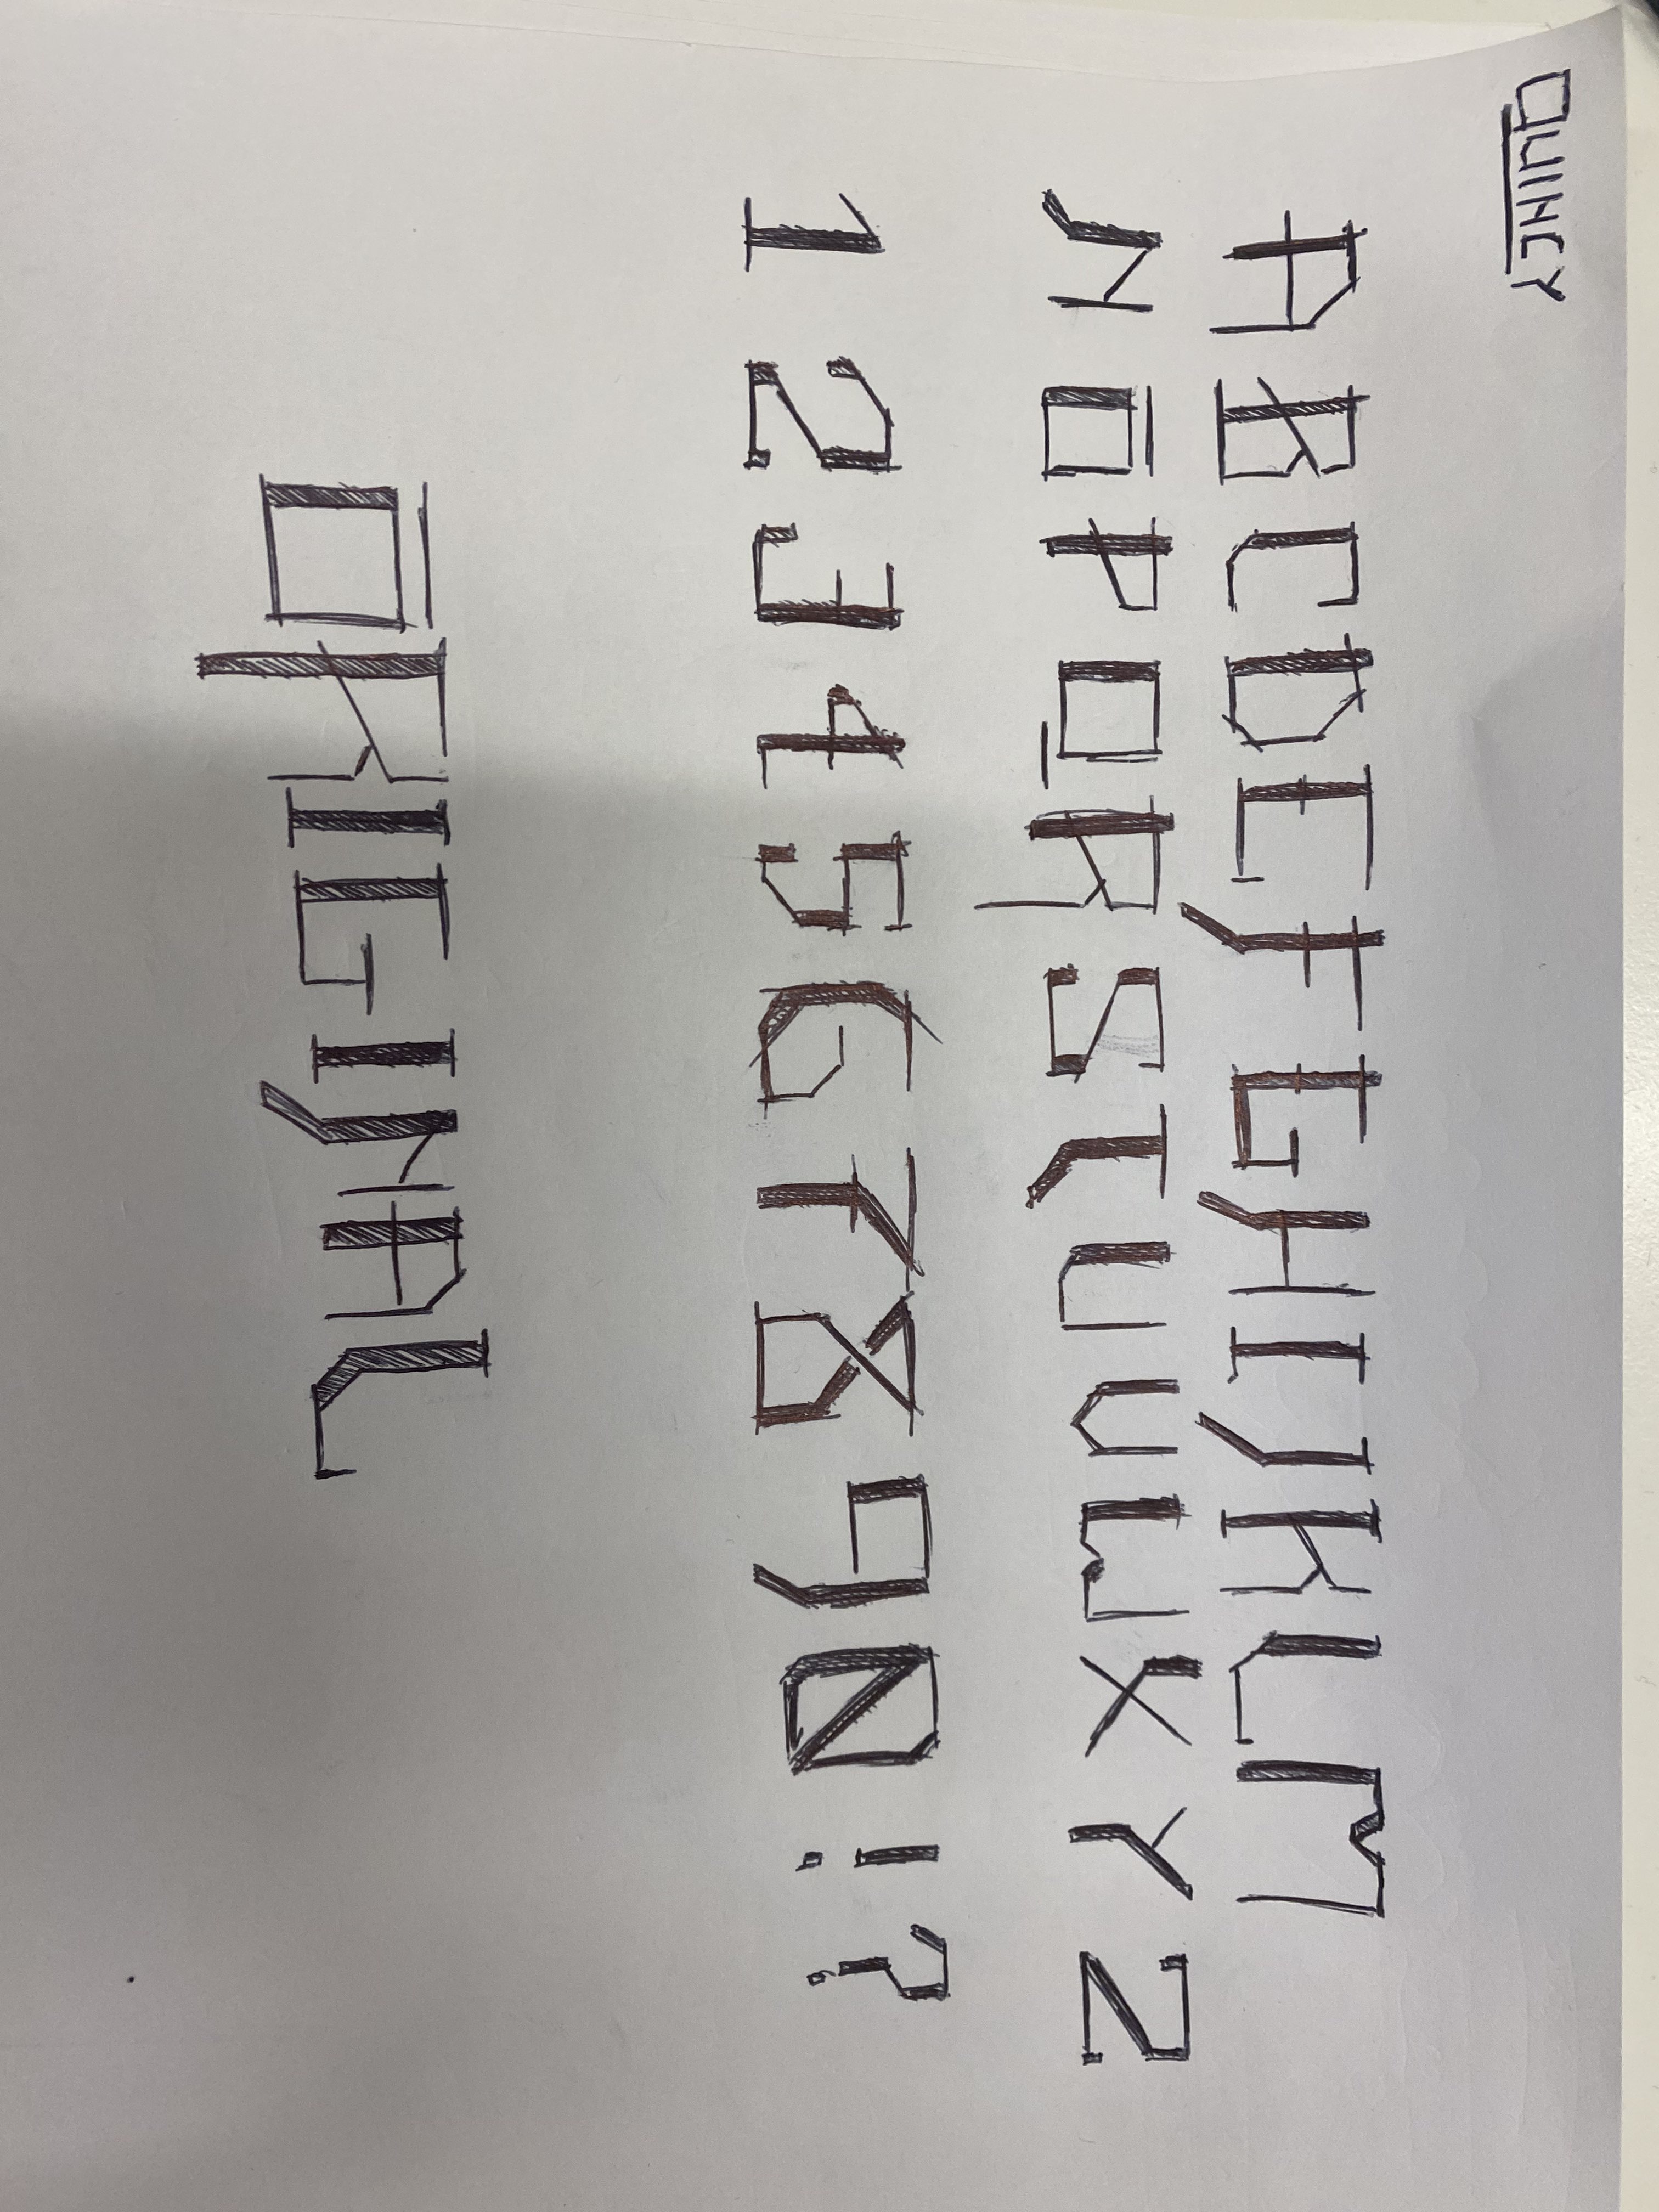 QUINCY
A B C D E F G H I J K L M
N O P Q R S T U V W X Y Z
1 2 3 4 5 6 7 8 9 0 ! ?
ORIGINAL